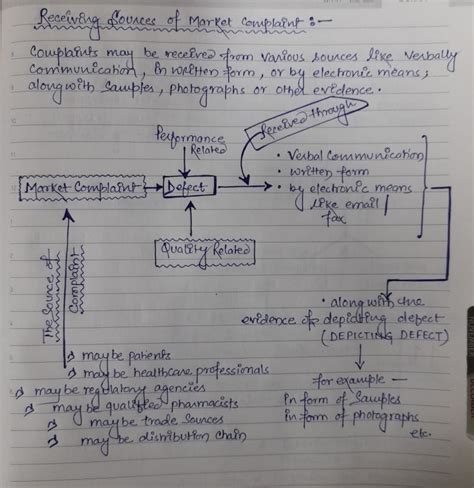 Receiving Sources of Market Complaint :-
Complaints may be received from various sources like verbally
communication, in written form, or by electronic means,
alongwith samples, photographs or other evidence.
Performance
Related
Received through
Market Complaint
Defect
• Verbal communication
• written form
• by electronic means
like email /
fax
Quality Related
The Source of
Complaint
• along with due
evidence of depicting defect
(DEPICTING DEFECT)
for example -
In form of Samples
In form of photographs
etc.
may be patients
may be healthcare professionals
may be regulatory agencies
may be qualified pharmacists
may be trade sources
may be distribution chain